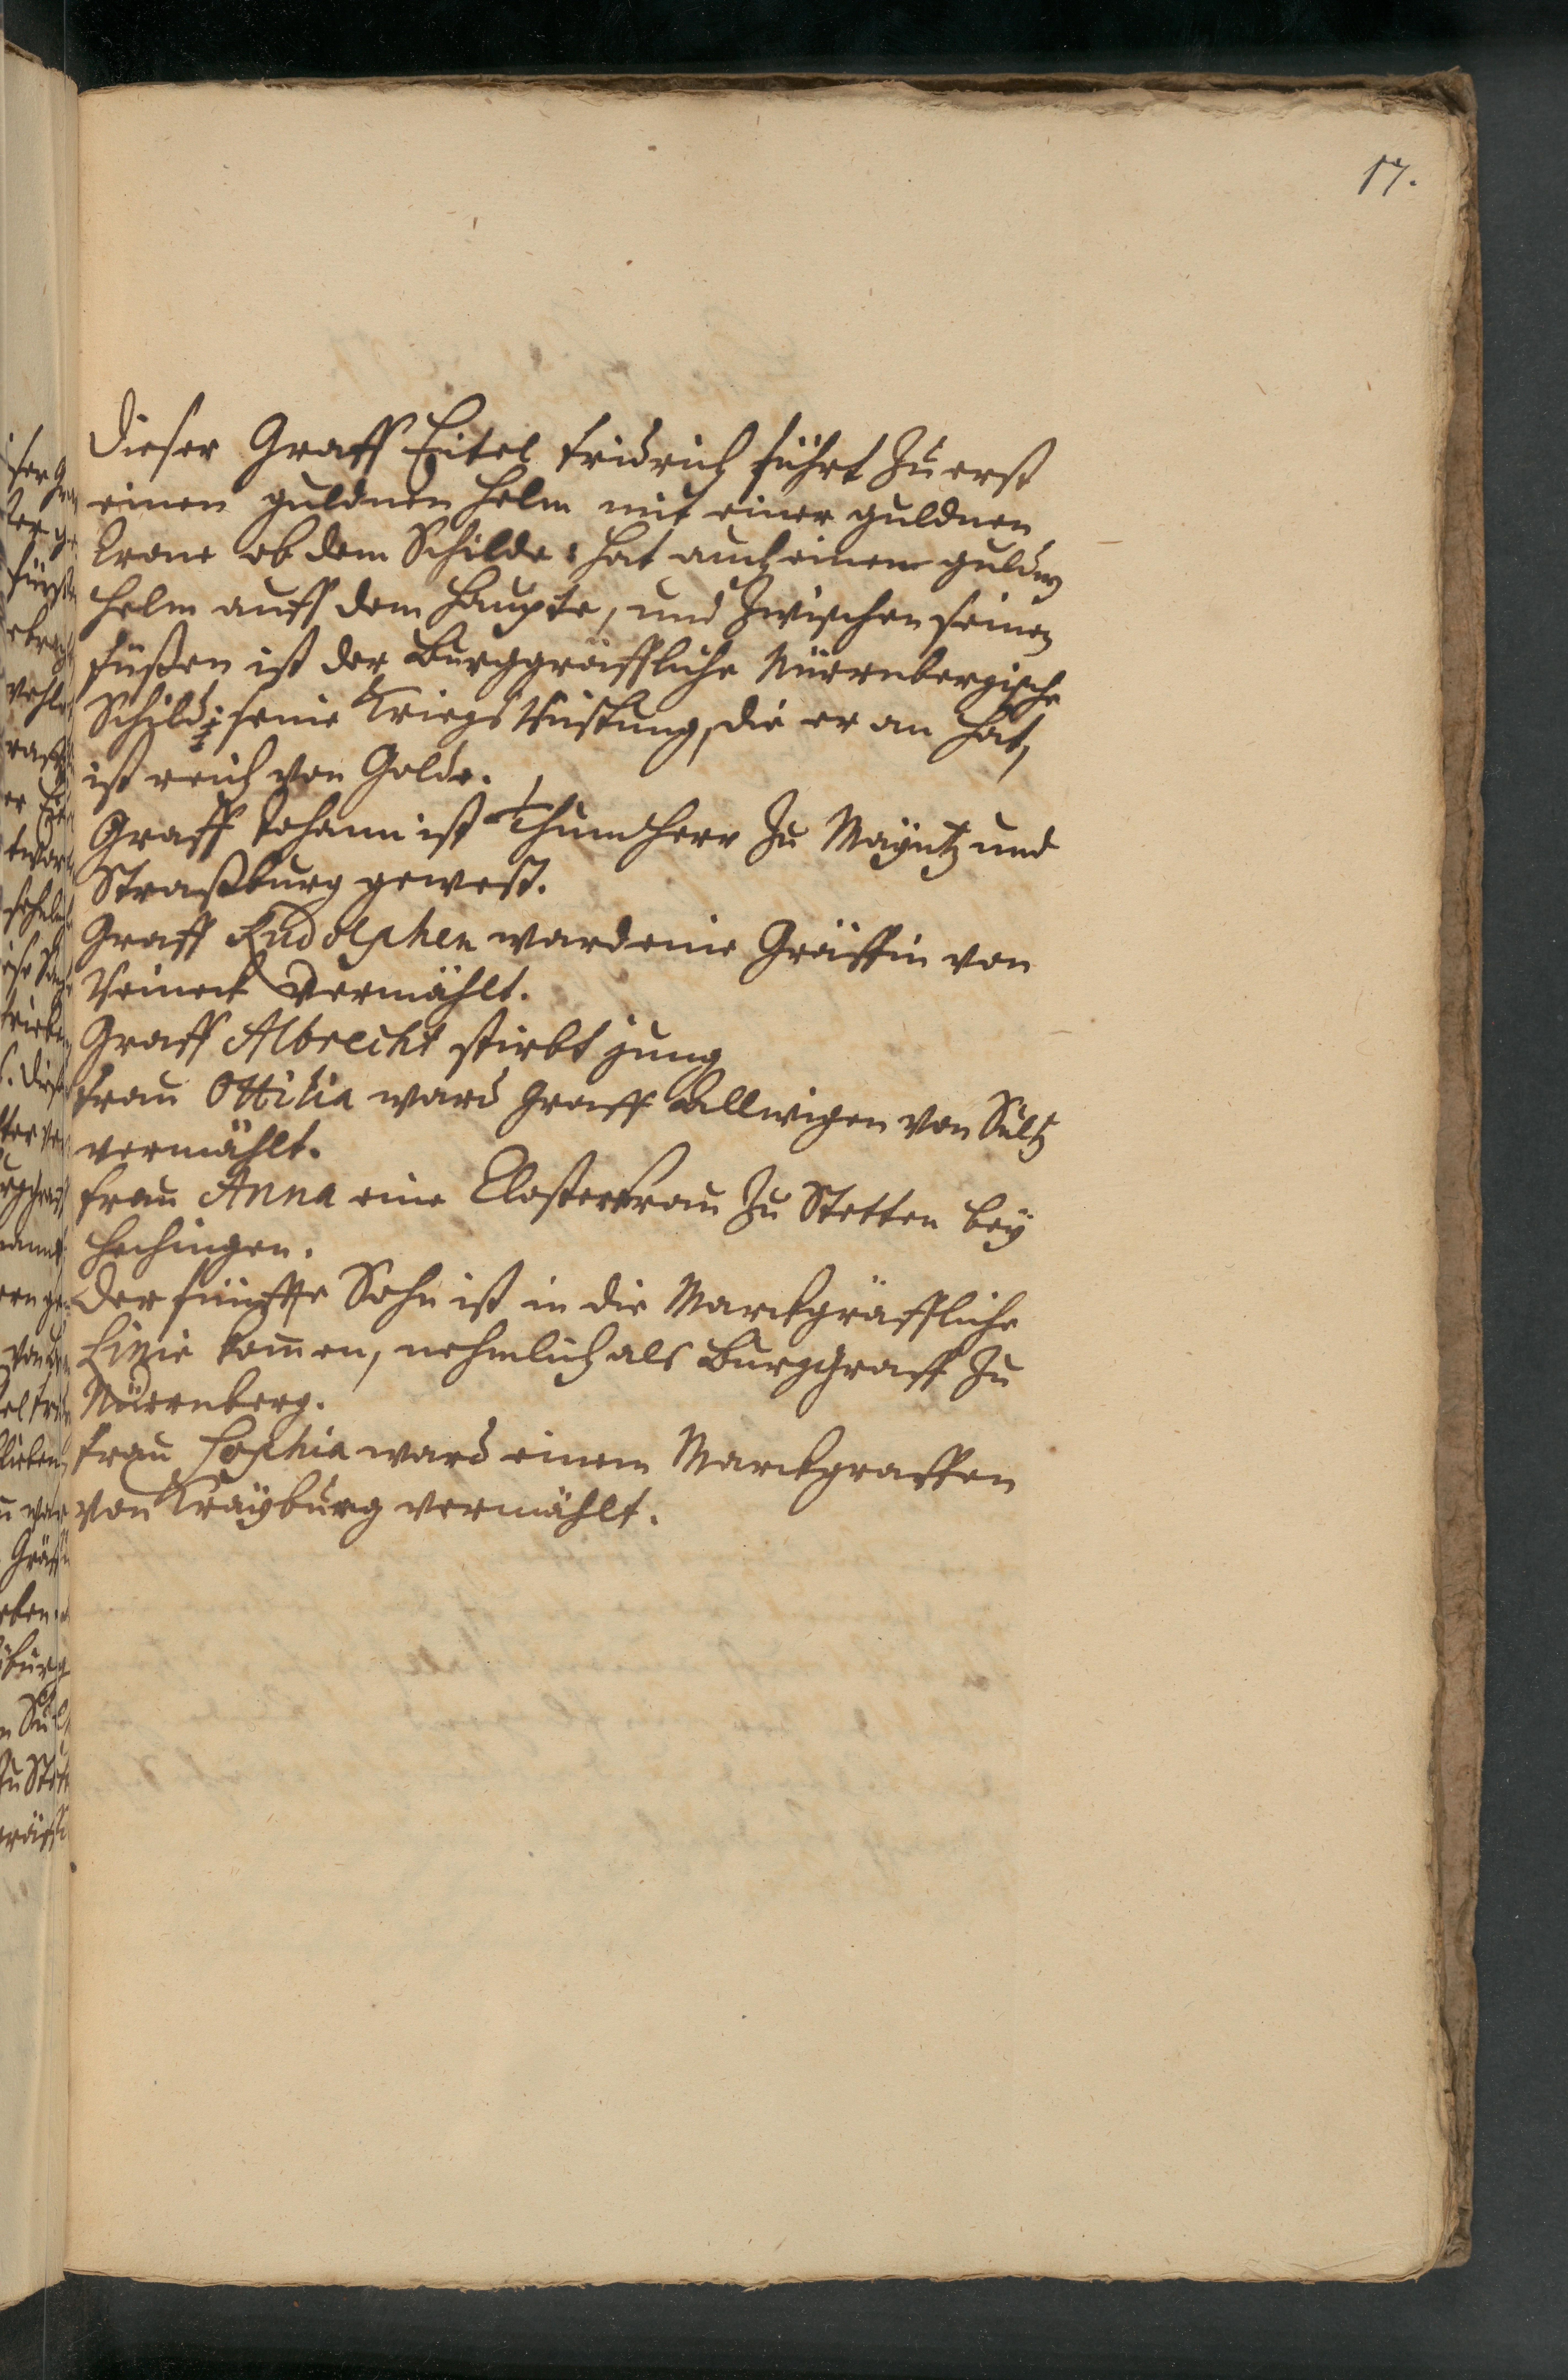 17.
Dieser Graff Eitel Fridrich führt Zu erst
einen guldnen Helm mit einer guldnen
Crone ob dem Schilde: hat auch einen guldnen
Helm auff dem Haupte, und Zwischen seinen
Füßen ist der Burggräffliche Nürnbergische
Schild; seine Kriegs Rüstung, die er an hat,
ist reich von Golde.
Graff Johann ist Thumherr Zu Mäyntz und
Straßburg gewest.
Graff Rudolphen ward eine Gräffin von
Reineck vermählt.
Graff Albrecht stirbt jung
Frau Ottilia ward Graff Allwigen von Sultz
vermählt.
Frau Anna eine Closterfrau Zu Stetten bey
Hechingen.
Der fünffte Sohn ist in die Marckgräffliche
Linie komen, nehmlich als Burggraff Zu
Nürnberg.
Frau Sophia ward einem Marckgraffen
von Kräyburg vermählt.